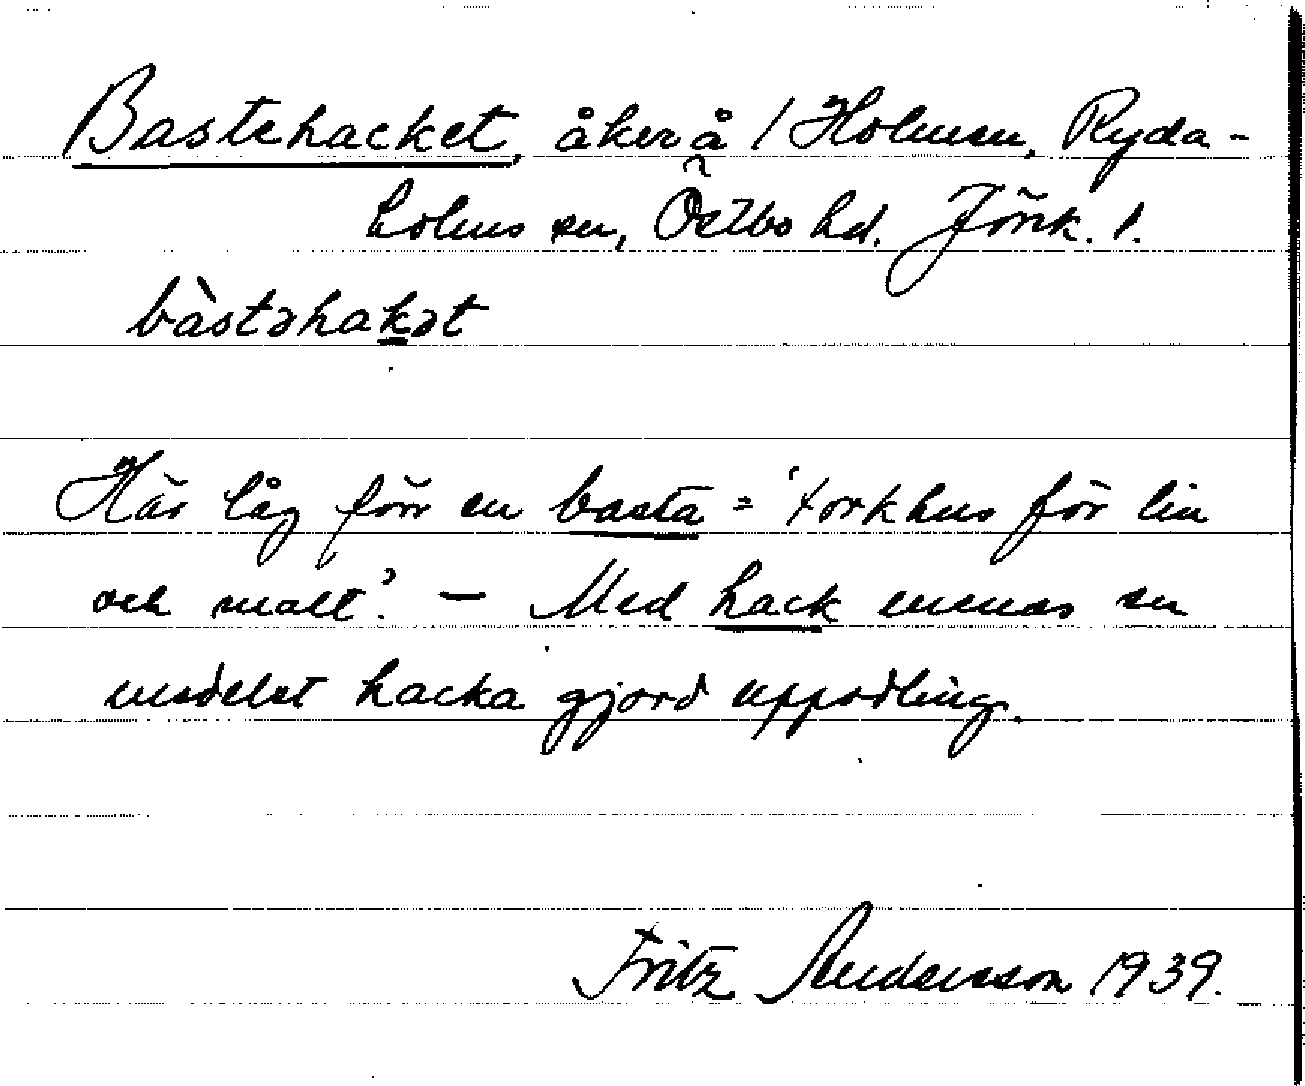 Bastehacket, åker å 1 Holmen, Ryda-
holms sn, Östbo hd. Jönk. l.
bàstəhak̲ət
Här låg förr en basta = 'torkhus för lin
och malt'. — Med hack menas en
medelst hacka gjord uppodling.
Fritz Andersson 1939.